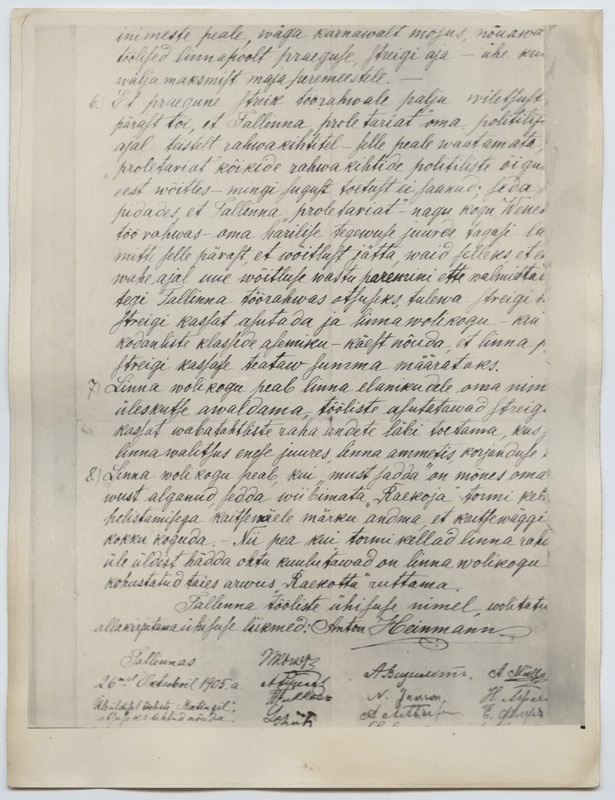 inimeste peale, wäga karnawalt mõjus, nõuawa
töölised linnapoolt praeguse, streigi aja – ühe kuu
wäljamaksmist majaperemeestele. —
6.) Et praegune streik töörahwale palju wiletsust
pärast tõi, et Tallinna „proletariat" oma politili
ajal teistelt rahwakihtitel – selle peale waatamata,
„proletariat" kõikide rahwa kihtide politiliste õigu
eest wõitles – mingi sugust toetust ei saanud; seda
pidades, et Tallinna „proletariat" – nagu kogu Wene
töörahwas – oma harilise tegewuse juure tagasi lä
mitte selle pärast, et wõitlust jätta, waid selleks et
wahe ajal uue wõitluse wastu paremini ette walmista
tegi Tallinna töörahwas otsuseks, tulewa streigi
streigi kassat asutada ja linnawolikogu – kui
kodanliste klasside asemiku – käest nõuda, et linna
streigi kassase teataw summa määrataks.
7.) Linna wolikogu peab linna elanikudele oma nim
üleskutse awaldama, tööliste asutatawad streigi
kassat wabatahtliste raha andete läbi toetama, kus
linnawalitsus enese juures, linna ammetis korjanduse
8.) Linna wolikogu peab, kui „must sadda" on mõnes oma
wust alganud sedda wiibimata „Raekoja tormi kell
helistamisega kaitsewäele märku andma et kaitsewäggi
kokku koguda. – Nii pea kui tormi kellad linna rahw
üle üldist hädda ohtu kuulutawad on linna wolikogu
kohustatud täies arwus „Raekotta" ruttama.
Tallinna tööliste ühisuse nimel, wolitatu
allakirjutama ühisuse liikmed: Anton Heinmann.
Tallinnas
26mel Oktobril 1905. a